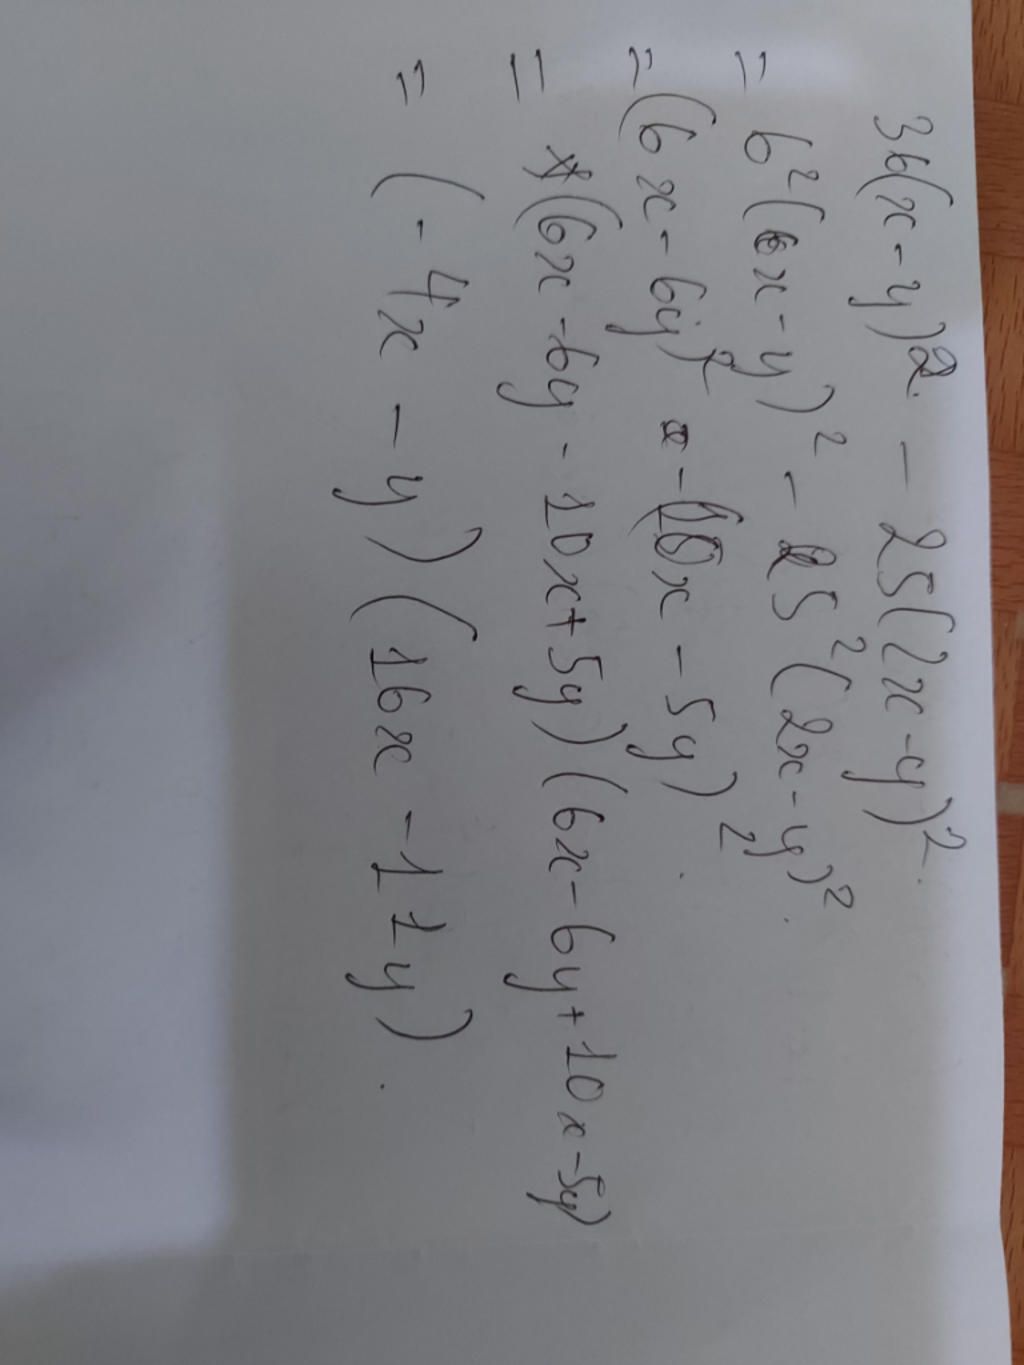 36(x-y)2. - 25(2x-y)².
= 6²(x-y)² - 25²(2x-y)².
= (6x-6y)² - (10x-5y)².
= (6x-6y-10x+5y)(6x-6y+10x-5y)
= (-4x-y)(16x-11y).